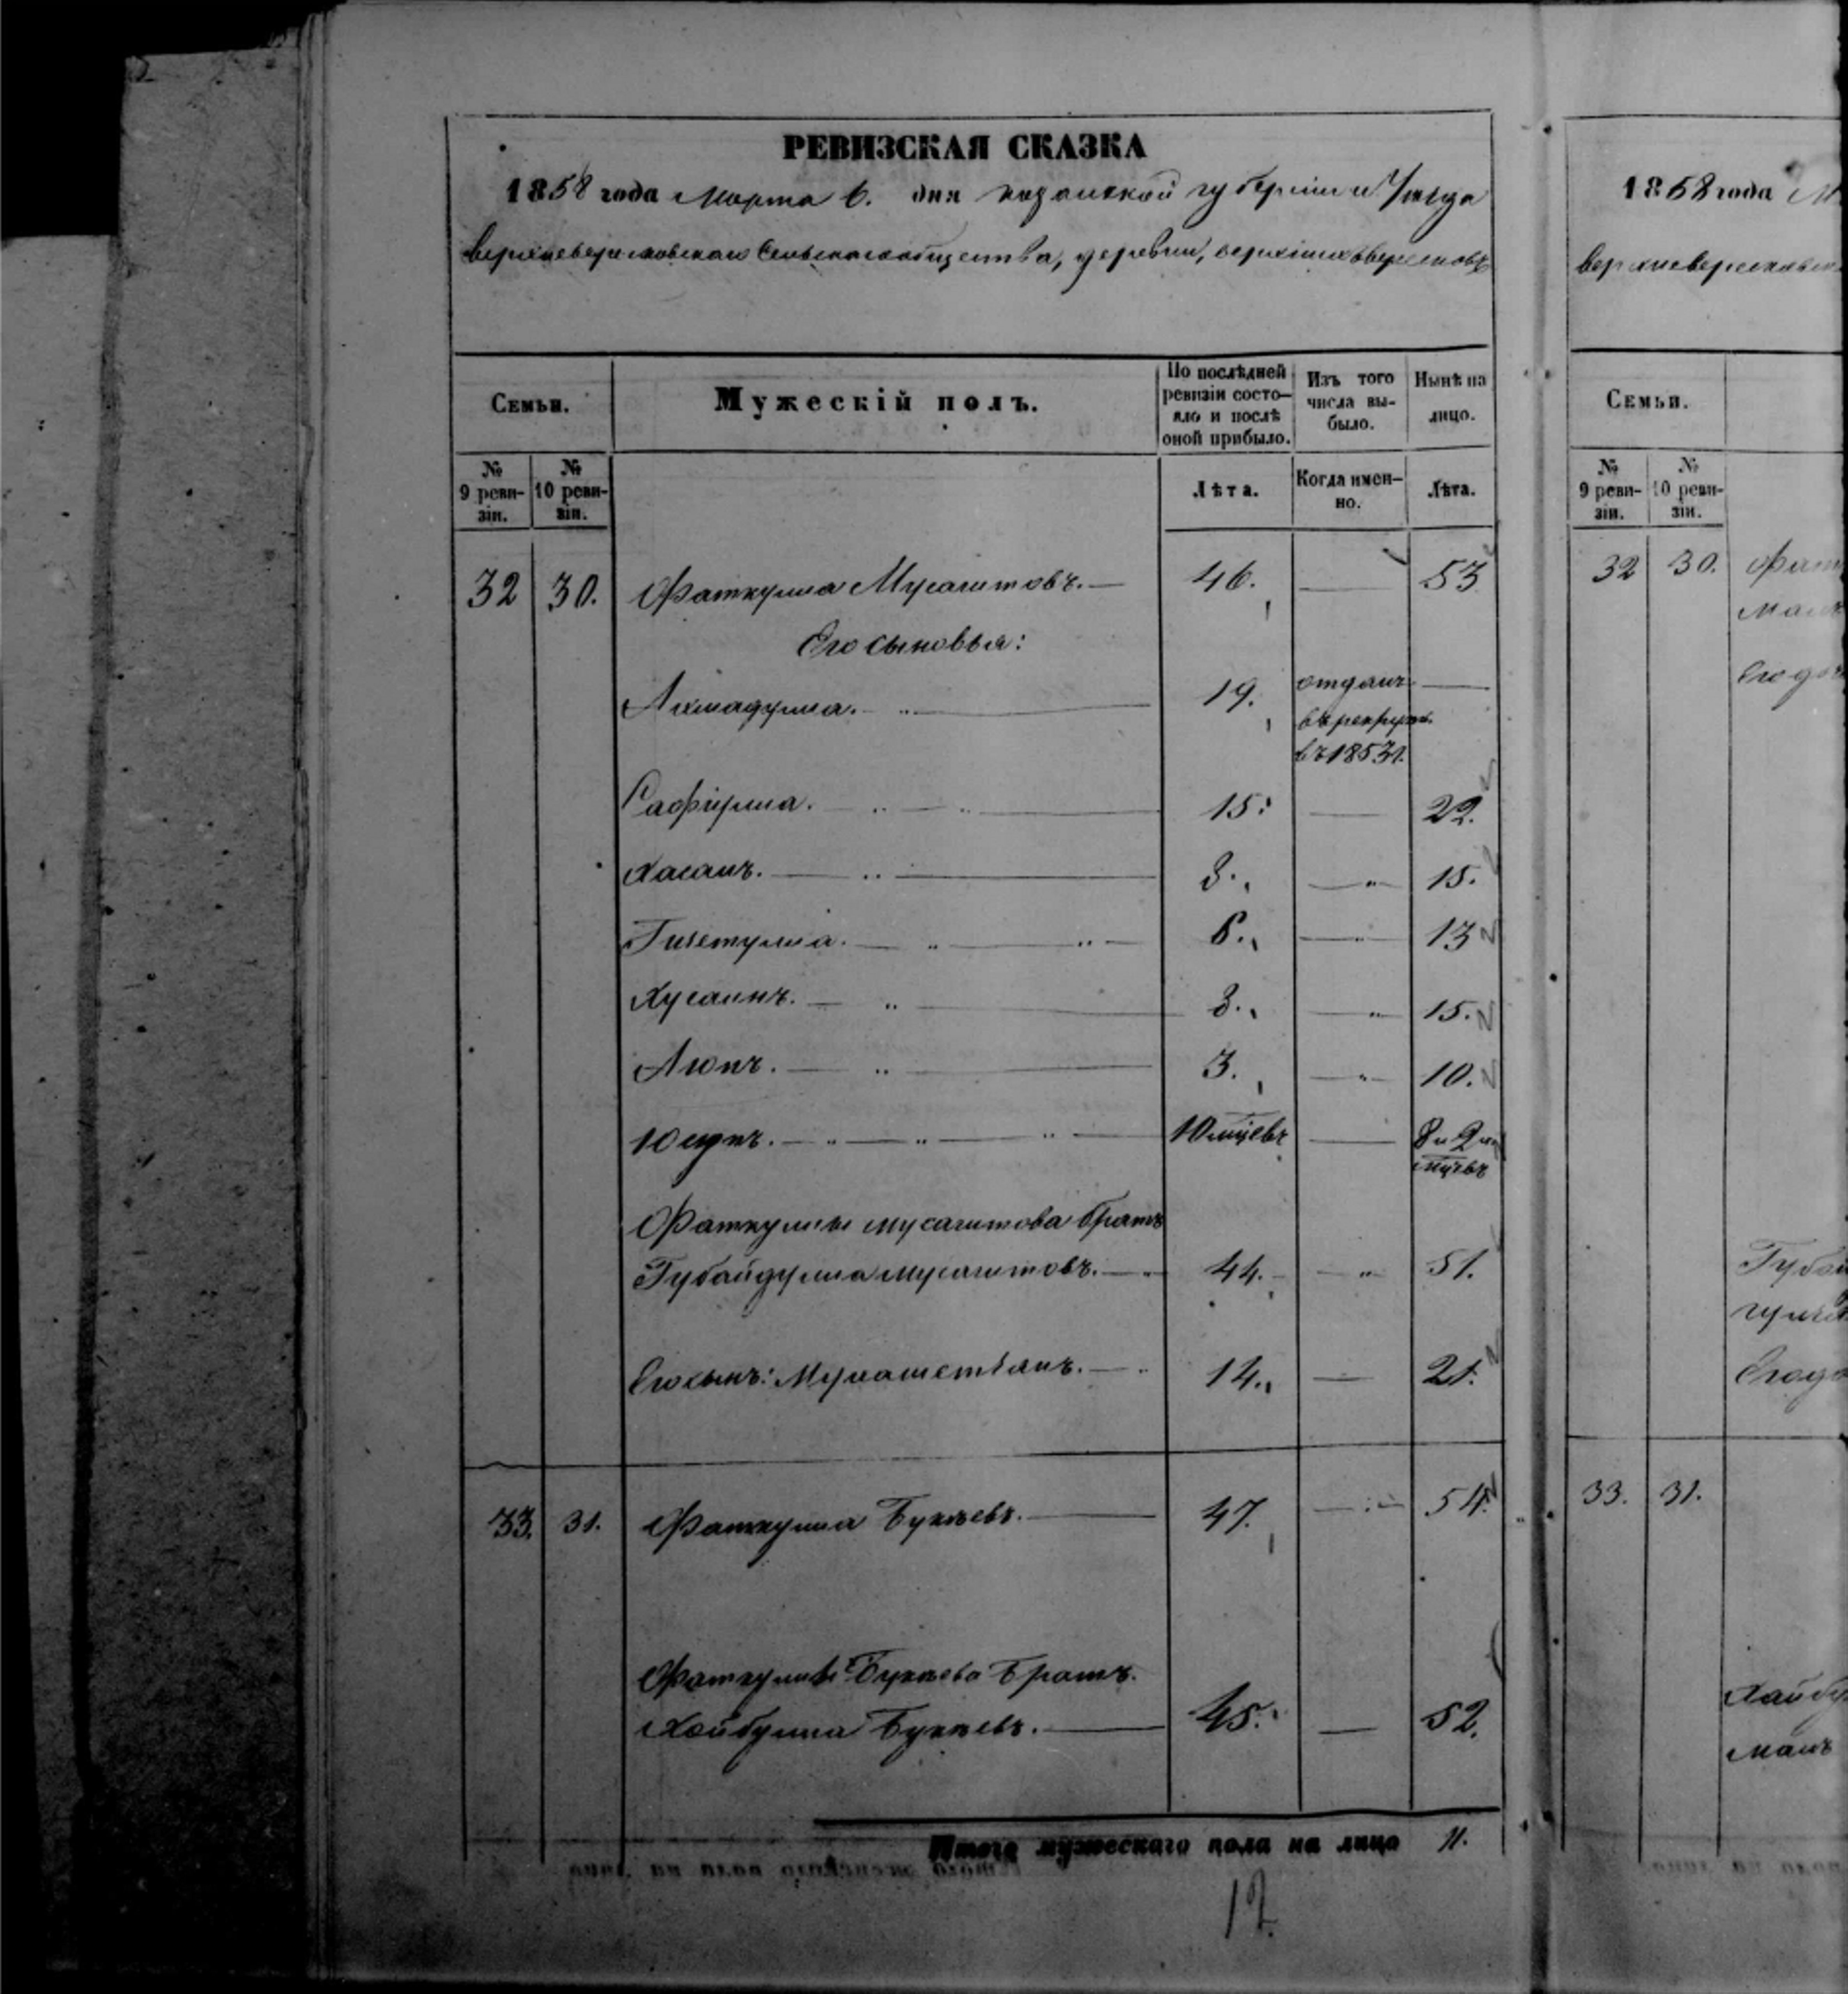 РЕВИЗСКАЯ СКАЗКА
1858 года Марта 6. дня казанской губернии и Уезда
верхневересковскаго Сельскагообщества, деревни, верхнихъ вересковъ
Семьи.
Мужескій полъ.
По послѣдней ревизіи состо-
яло и послѣ оной прибыло.
Изъ того числа вы-
было.
Нынѣ на лицо.
№ 9 реви-
зіи.
№ 10 реви-
зіи.
Лѣта.
Когда имен-
но.
Лѣта.
32 30. Фаткулла Мусагитовъ. 46. — 53
Его сыновья:
Ахмадулла. 19. отданъ —
въ рекруты
въ 1853 г.
Сафіулла. 15. — 22.
Хасанъ. 8. — 15.
Гизетулла. 6. — 13
Хусаинъ. 8. — 15.
Аюпъ. 3. — 10.
Юсупъ. 10 мцевъ — 8 и 2
мцевъ
Фаткуллы Мусагитова братъ
Губайдулла Мусагитовъ. 44. — 51.
Его сынъ: 14. — 21.
33. 31. Фаткулла Букаевъ. 47. — 54.
Фаткуллы Букаева Братъ.
Хайбулла Букаевъ. 45. — 52.
Итого мужескаго пола на лицо 11.
12.
1858 года М
верхневересковск
Семьи.
№ 9 реви-
зіи.
№ 10 реви-
зіи.
32 30. Фат
Его доч
Губай
Его до
33. 31.
Хайбу